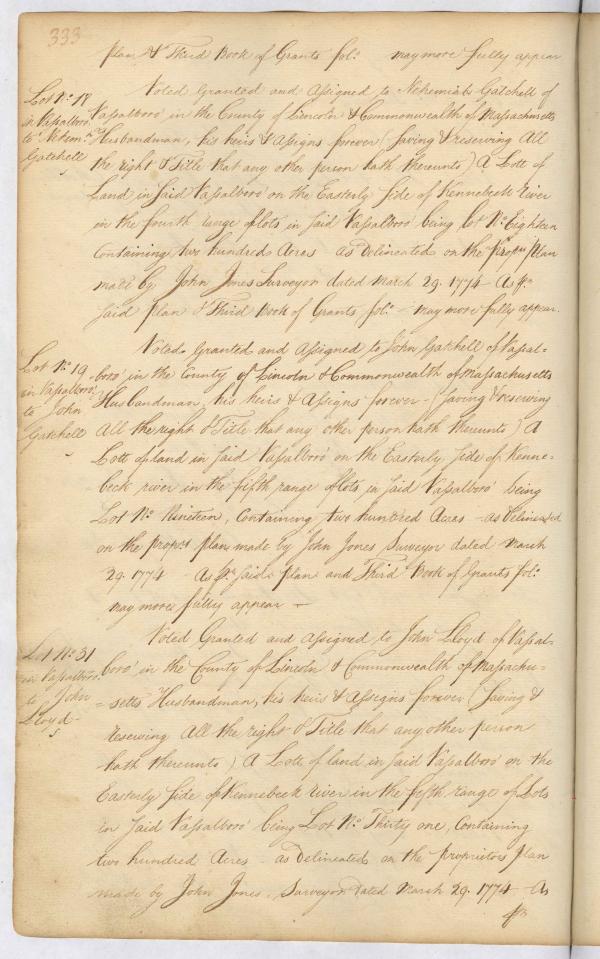 333
plan & Third Book of Grants fol.º may more fully appear
Lot Nº 18
in Vassalboro'
to Nehem.h
Gatchell
Voted Granted and assigned to Nehemiah Gatchell of
Vassalboro' in the County of Lincoln & Commonwealth of Massachusetts
Husbandman, his heirs & Assigns forever (saving & reserving All
the right & Title that any other person hath thereunto) A Lott of
Land in said Vassalboro' on the Easterly side of Kennebeck River
in the fourth range of lots in said Vassalboro' being lot Nº Eighteen
Containing two hundred Acres as Delineated on the Plan
made by John Jones Surveyor dated March 29. 1774 - As pr
said plan & Third Book of Grants fol.º - may more fully appear.
Lot Nº 19
in Vassalboro'
to John
Gatchell
Voted Granted and assigned to John Gatchell of Vassal-
boro' in the County of Lincoln & Commonwealth of Massachusetts
Husbandman, his heirs & Assigns forever - (saving & reserving
All the right & Title that any other person hath thereunto) A
Lott of land in said Vassalboro' on the Easterly side of Kenne-
beck river in the fifth range of lots in said Vassalboro' being
Lot Nº Nineteen, Containing two hundred Acres - as Delineated
on the proprs plan made by John Jones Surveyor dated March
29. 1774 - As pr said plan and Third Book of Grants fol.º
may more fully appear -
Lot Nº 31
in Vassalboro'
to John
Lloyd -
Voted Granted and assigned to John Lloyd of Vassal-
boro' in the County of Lincoln & Commonwealth of Massachu-
-setts Husbandman, his heirs & Assigns forever (saving &
reserving All the right & Title that any other person
hath thereunto) A Lott of land in said Vassalboro' on the
Easterly side of Kennebeck river in the fifth range of Lots
in said Vassalboro' being Lot Nº Thirty one, Containing
two hundred Acres - as Delineated on the proprietors Plan
made by John Jones, Surveyor dated March 29. 1774 - As
pr